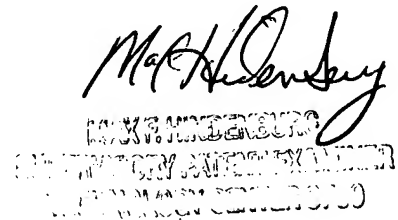 Max Hindenburg
MAX F. HINDENBURG
SUPERVISORY PATENT EXAMINER
TECHNOLOGY CENTER